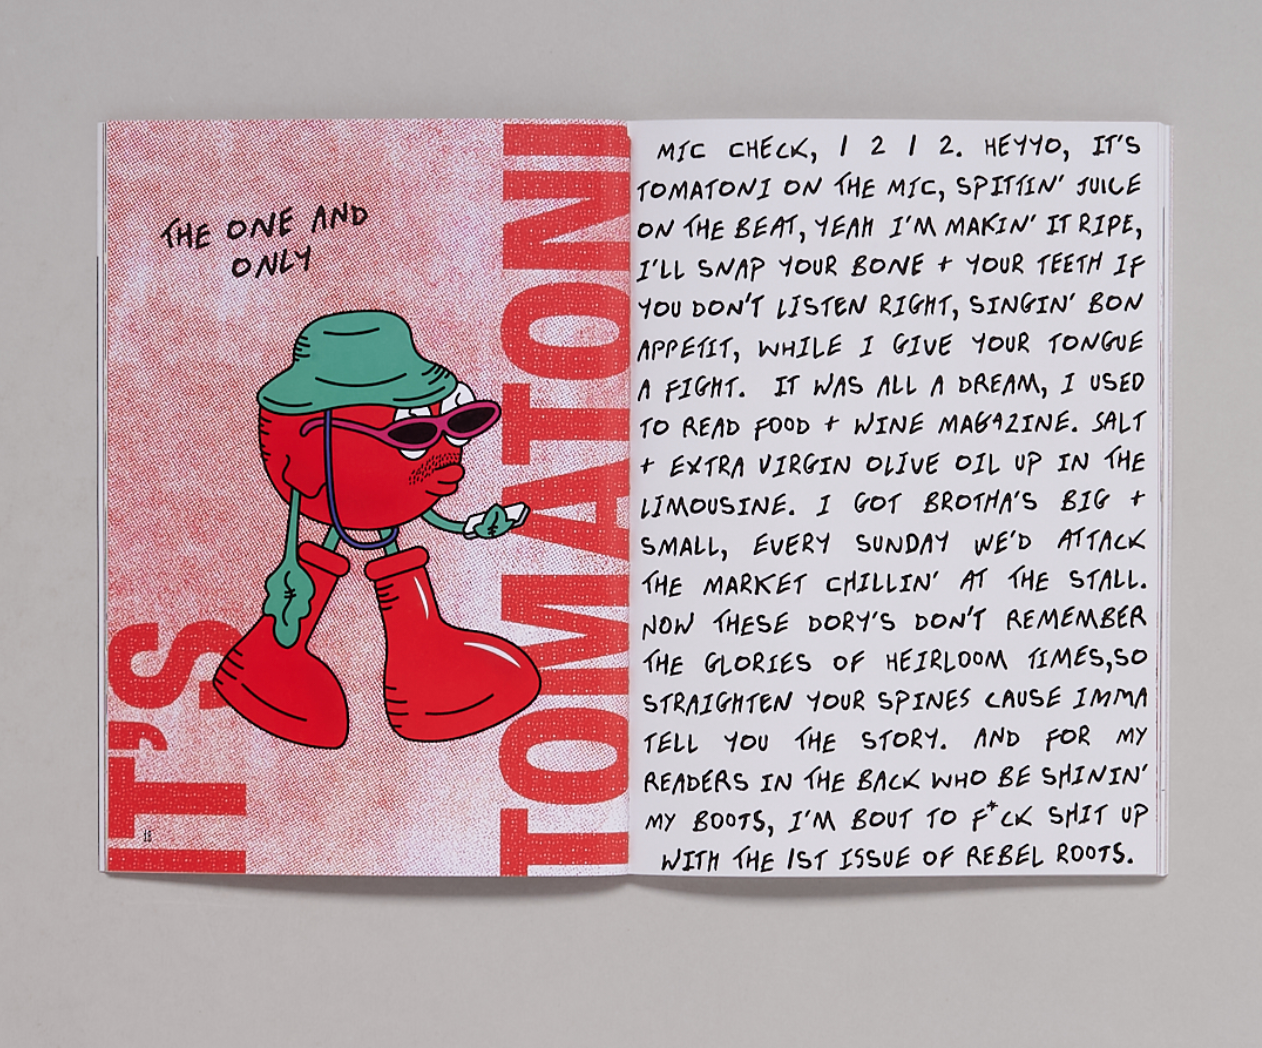 THE ONE AND
ONLY
IT'S
TOMATONI
18
MIC CHECK, 1 2 1 2. HEYYO, IT'S
TOMATONI ON THE MIC, SPITTIN' JUICE
ON THE BEAT, YEAH I'M MAKIN' IT RIPE,
I'LL SNAP YOUR BONE + YOUR TEETH IF
YOU DON'T LISTEN RIGHT, SINGIN' BON
APPETIT, WHILE I GIVE YOUR TONGUE
A FIGHT. IT WAS ALL A DREAM, I USED
TO READ FOOD + WINE MAGAZINE. SALT
+ EXTRA VIRGIN OLIVE OIL UP IN THE
LIMOUSINE. I GOT BROTHA'S BIG +
SMALL, EVERY SUNDAY WE'D ATTACK
THE MARKET CHILLIN' AT THE STALL.
NOW THESE DORY'S DON'T REMEMBER
THE GLORIES OF HEIRLOOM TIMES,SO
STRAIGHTEN YOUR SPINES CAUSE IMMA
TELL YOU THE STORY. AND FOR MY
READERS IN THE BACK WHO BE SHININ'
MY BOOTS, I'M BOUT TO F*CK SHIT UP
WITH THE 1ST ISSUE OF REBEL ROOTS.